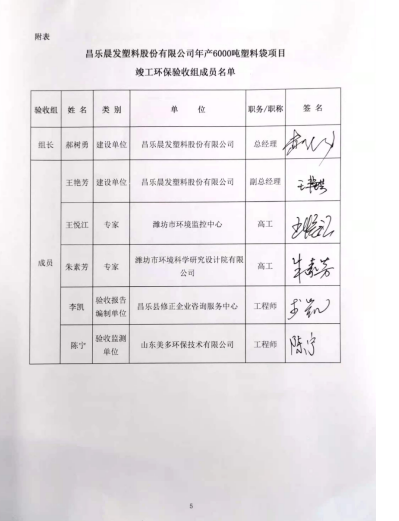 附表
昌乐晨发塑料股份有限公司年产6000吨塑料袋项目
竣工环保验收组成员名单
验收组 姓名 类别 单位 职务/职称 签名
组长 郝树勇 建设单位 昌乐晨发塑料股份有限公司 总经理
成员 王艳芳 建设单位 昌乐晨发塑料股份有限公司 副总经理
王悦江 专家 潍坊市环境监控中心 高工
朱素芳 专家 潍坊市环境科学研究设计院有限
公司 高工 朱素芳
李凯 验收报告
编制单位 昌乐县修正企业咨询服务中心 工程师
陈宁 验收监测
单位 山东美多环保技术有限公司 工程师 陈宁
5